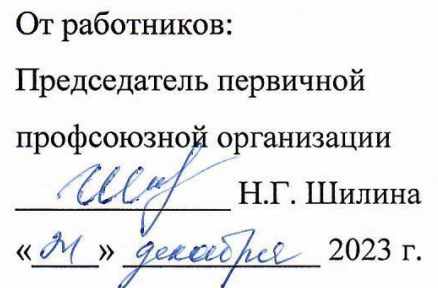 От работников:
Председатель первичной
профсоюзной организации
Н.Г. Шилина
«21» декабря 2023 г.